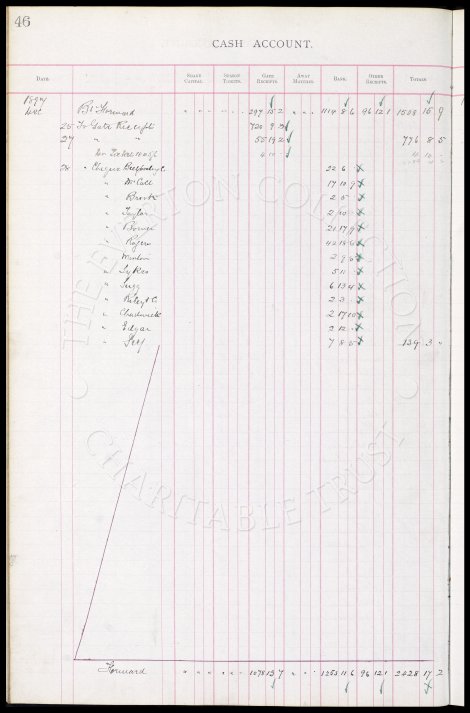 46
CASH ACCOUNT.
DATE. SHARE CAPITAL. SEASON TICKETS. GATE RECEIPTS. AWAY MATCHES. BANK. OTHER RECEIPTS. TOTALS.
1897
Dec Bt Forward " " " " " " 297 15 2 " " " 1114 8 6 96 12 1 1508 15 9
25 To Gate Receipts 720 9 3
27 " " 55 19 2 776 8 5
4 10 "
28 " Cheque 22 6 "
" McCall 17 10 9
" Brest 2 5 "
" Taylor 2 10 "
" Bowie 21 17 9
" Rogers
" 2 9 6
" Sykes 5 11 "
" Sugg 6 13 4
" Riley & Co 2 3 "
" Chadwick 2 17 10
" Edgar 2 12 "
" Self 7 8 5 139 3 "
Forward " " " " " " 1078 13 7 " " " 1253 11 6 96 12 1 2428 17 2
THE EVERTON COLLECTION
CHARITABLE TRUST